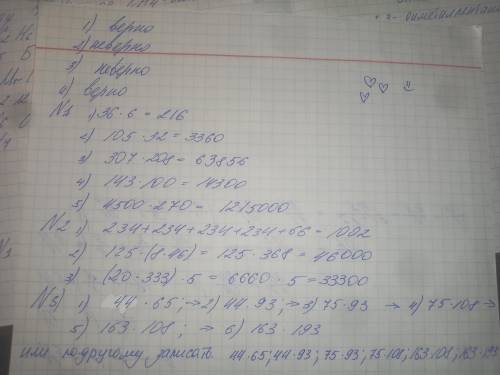 1) верно
2) неверно
3) неверно
4) верно
N1 1) 36 · 6 = 216
2) 105 · 32 = 3360
3) 307 · 208 = 63856
4) 143 · 100 = 14300
5) 4500 · 270 = 1215000
N2 1) 234+234+234+234+66 = 1002
2) 125 · (8·46) = 125 · 368 = 46000
3) (20 · 333) · 5 = 6660 · 5 = 33300
N3) 1) 44 · 65; → 2) 44 · 93; → 3) 75 · 93 → 4) 75 · 108 →
5) 163 · 108; → 6) 163 · 193
или подругому записать 44·65; 44·93; 75·93; 75·108; 163·108; 163·193